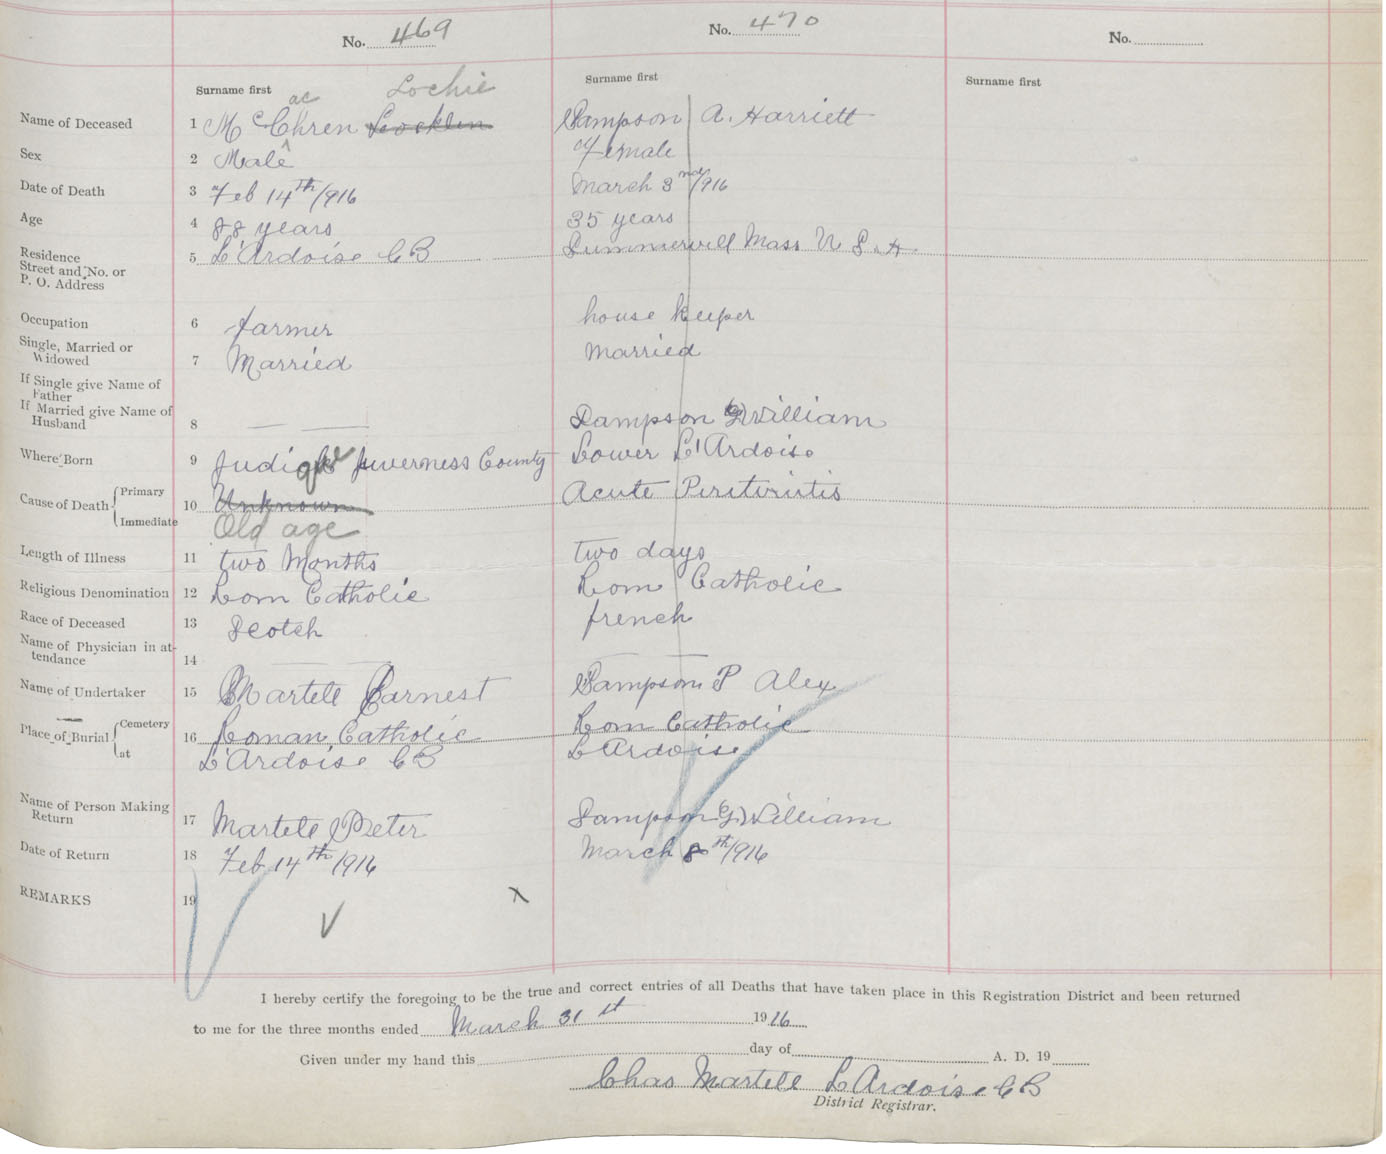 No. 469 No. 470 No.
Surname first Surname first Surname first
ac Lochie
Name of Deceased 1 McChren Locklin Sampson A. Harriett
Sex 2 Male Female
Date of Death 3 Feb 14th/916 March 3nd/916
Age 4 88 years 35 years
Residence Street and No. or P. O. Address 5 L'Ardoise CB Summervill Mass U S A
Occupation 6 farmer house keeper
Single, Married or Widowed 7 Married Married
If Single give Name of Father
If Married give Name of Husband 8 — — Sampson G William
Where Born 9 Judique Inverness County Lower L'Ardoise
Cause of Death { Primary 10 Unknown Acute Peritinitis
Immediate Old age
Length of Illness 11 two Months two days
Religious Denomination 12 Rom Catholic Rom Catholic
Race of Deceased 13 Scotch french
Name of Physician in attendance 14 — — — —
Name of Undertaker 15 Martell Earnest Sampson P Alex
Place of Burial { Cemetery 16 Roman Catholic Rom Catholic
at L'Ardoise CB L'Ardoise
Name of Person Making Return 17 Martell Peter Sampson G William
Date of Return 18 Feb 14th/916 March 8th/916
REMARKS 19
I hereby certify the foregoing to be the true and correct entries of all Deaths that have taken place in this Registration District and been returned
to me for the three months ended March 31st 1916
Given under my hand this day of A. D. 19
Chas Martell L'Ardoise CB
District Registrar.